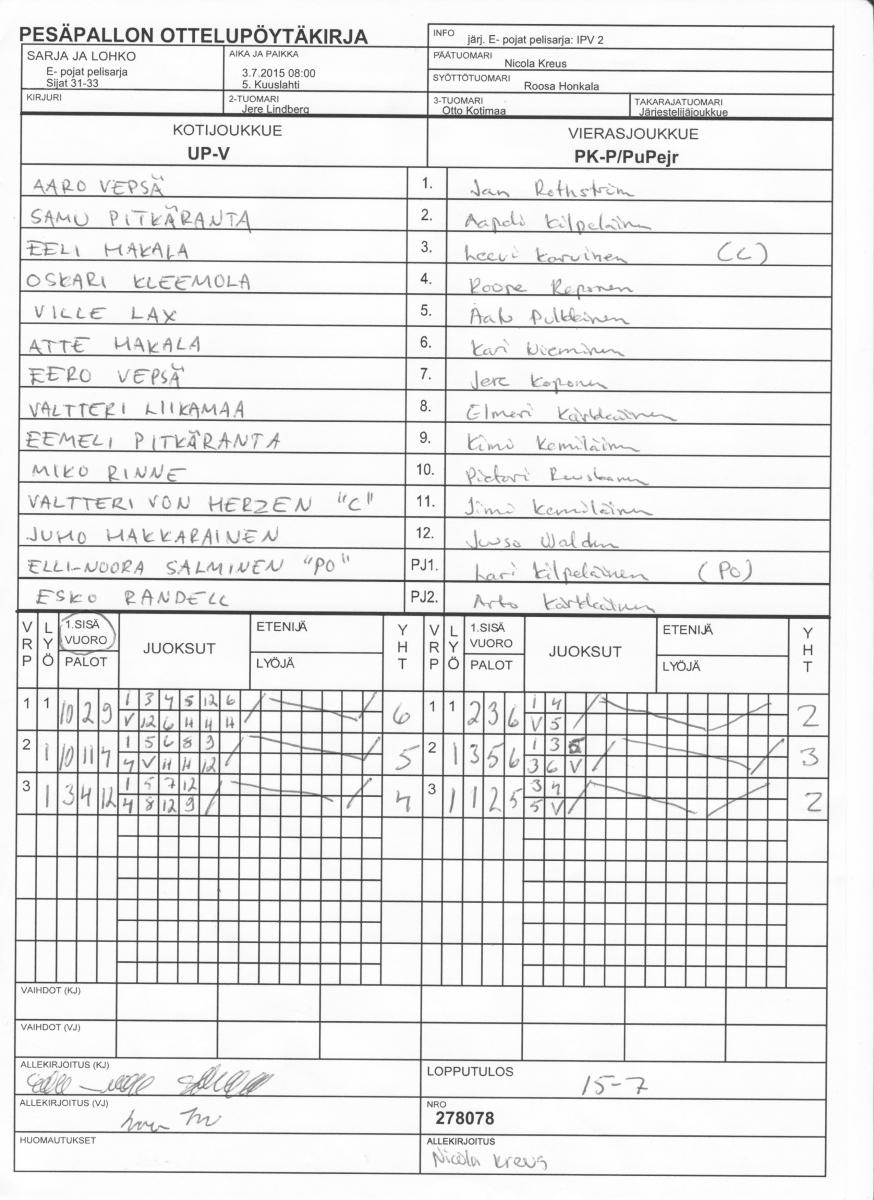 PESÄPALLON OTTELUPÖYTÄKIRJA
INFO järj. E- pojat pelisarja: IPV 2
SARJA JA LOHKO
E- pojat pelisarja
Sijat 31-33
AIKA JA PAIKKA
3.7.2015 08:00
5. Kuuslahti
PÄÄTUOMARI Nicola Kreus
SYÖTTÖTUOMARI Roosa Honkala
KIRJURI
2-TUOMARI
Jere Lindberg
3-TUOMARI
Otto Kotimaa
TAKARAJATUOMARI
Järjestelijäjoukkue
KOTIJOUKKUE
UP-V
VIERASJOUKKUE
PK-P/PuPejr
AARO VEPSÄ 1. Jan Rothström
SAMU PITKÄRANTA 2. Aapeli Kilpeläinen
EELI MAKALA 3. Leevi Karvinen (C)
OSKARI KLEEMOLA 4. Roope Reponen
VILLE LAX 5. Aatu Pulkkinen
ATTE MAKALA 6. Kari Nieminen
EERO VEPSÄ 7. Jere Koponen
VALTTERI LIIKAMAA 8. Elmeri Kärkkäinen
EEMELI PITKÄRANTA 9. Kimi Kemiläinen
MIKO RINNE 10. Pietari
VALTTERI VON HERZEN "C" 11. Jimi Kemiläinen
JUHO MAKKARAINEN 12. Juuso Walden
ELLI-NOORA SALMINEN "PO" PJ1. Lari Kilpeläinen (PO)
ESKO RANDELL PJ2. Arto Kärkkäinen
VRP LYÖ 1.SISÄ VUORO PALOT JUOKSUT ETENIJÄ LYÖJÄ YHT VRP LYÖ 1.SISÄ VUORO PALOT JUOKSUT ETENIJÄ LYÖJÄ YHT
1 1 10 2 9 1 3 4 5 12 6 6 1 1 2 3 6 1 4 2
V 12 6 H H H V 5
2 1 10 11 4 1 5 6 8 9 5 2 1 3 5 6 1 3 5 3
4 V H H 12 3 6 V
3 1 3 4 12 1 5 7 12 4 3 1 1 2 5 3 4 2
4 8 12 9 5 V
VAIHDOT (KJ)
VAIHDOT (VJ)
ALLEKIRJOITUS (KJ)
LOPPUTULOS 15-7
ALLEKIRJOITUS (VJ)
NRO
278078
HUOMAUTUKSET
ALLEKIRJOITUS
Nicola Kreus